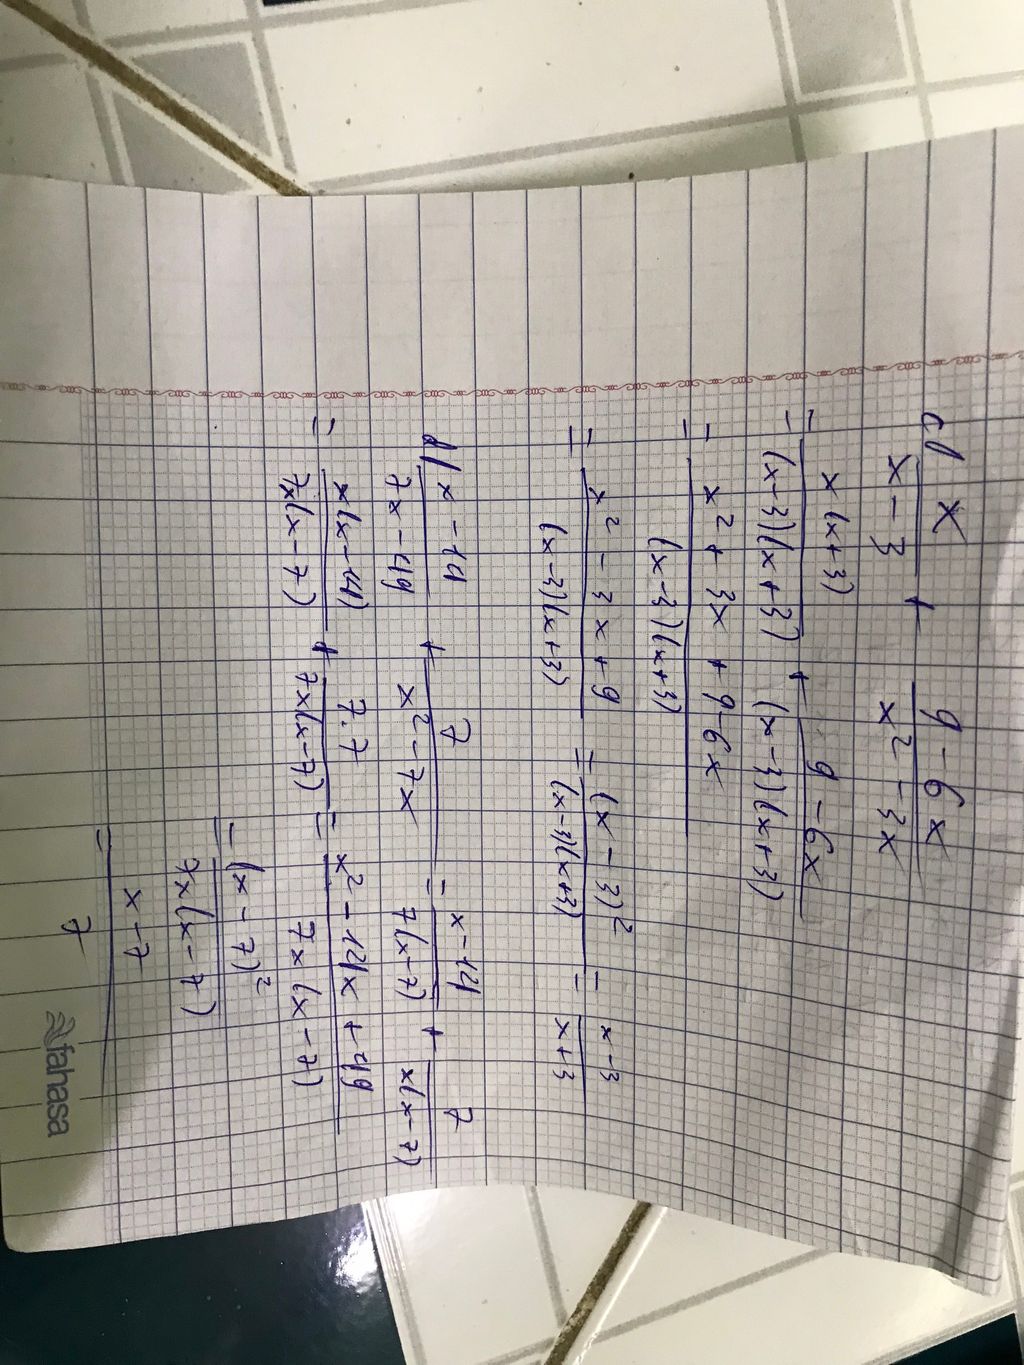 c) x/(x-3) + (9-6x)/(x² - 3x)
= x(x+3)/((x-3)(x+3)) + (9-6x)/((x-3)(x+3))
= (x² + 3x + 9-6x)/((x-3)(x+3))
= (x² - 3x + 9)/((x-3)(x+3)) = (x - 3)²/((x-3)(x+3)) = (x-3)/(x+3)
d) (x-14)/(7x-49) + 7/(x²-7x) = (x-14)/(7(x-7)) + 7/(x(x-7))
= x(x-14)/(7x(x-7)) + 7.7/(7x(x-7)) = (x²-14x + 49)/(7x(x-7))
= (x-7)²/(7x(x-7))
= (x-7)/7
fahasa